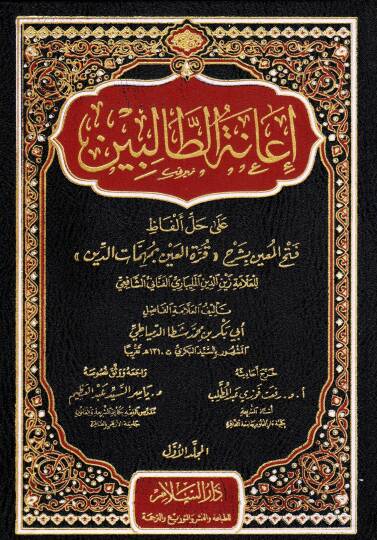 إِعَانَةُ الطَّالِبِين
عَلَى حَلِّ أَلفَاظِ
فَتْحِ المُعِين بِشَرْحِ « قُرَّة العَيْن بِمُهِمَّات الدِّين »
لِلعَلَّامَة زَيْن الدِّين المليباري الفَنَاني الشَّافِعي
تأليف العلّامة الفاضل
أبي بكر بن محمد شطا الدمياطي
المشهور بالسيد البكري ت ١٣١٠هـ تقريبا
خرج أحاديثه
أ. د. رفعت فوزي عبد المطلب
أستاذ الشريعة
بكلية دار العلوم بجامعة القاهرة
راجعه ووثق نصوصه
د. ياسر السيد عبد العظيم
جامعة الأزهر بالقاهرة
المجلد الأول
دار السلام
للطباعة والنشر والتوزيع والترجمة